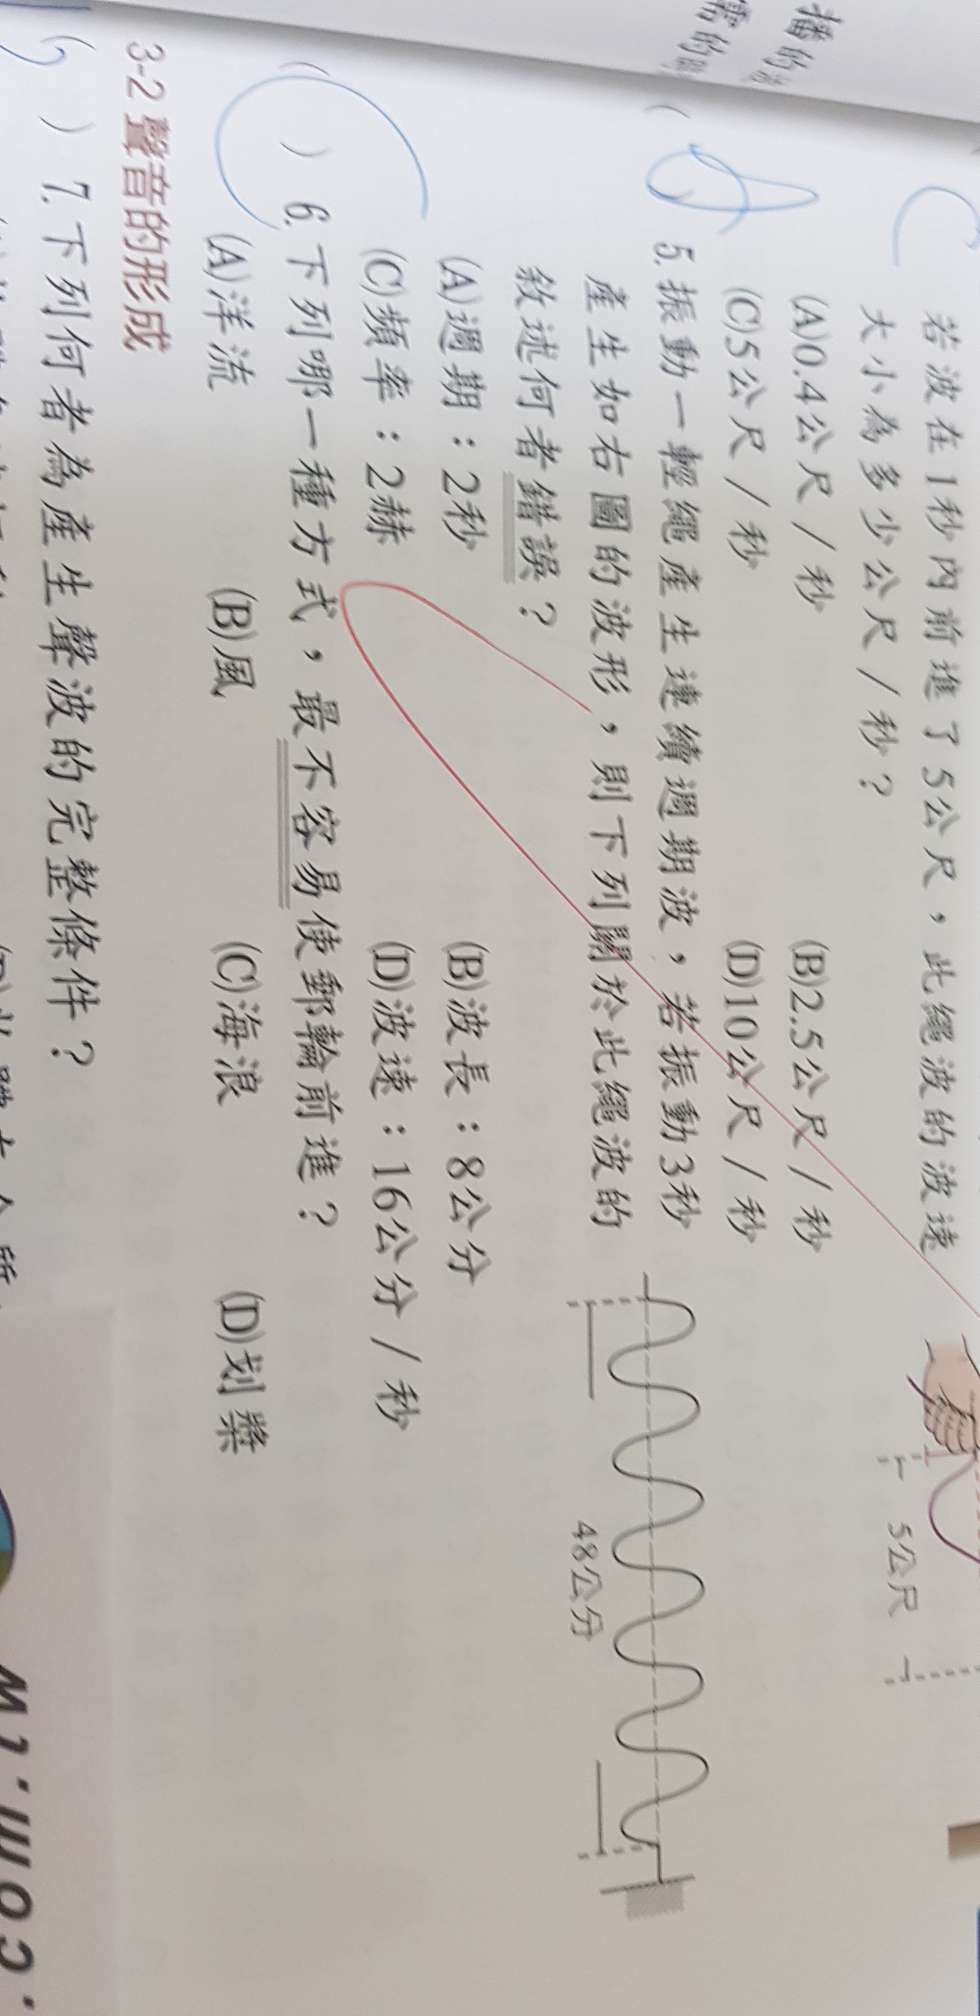 若波在1秒內前進了5公尺，此繩波的波速
大小為多少公尺/秒？
(A)0.4公尺/秒 (B)2.5公尺/秒
(C)5公尺/秒 (D)10公尺/秒
5公尺
5.振動一輕繩產生連續週期波，若振動3秒
產生如右圖的波形，則下列關於此繩波的
敘述何者錯誤？
(A)週期：2秒 (B)波長：8公分
(C)頻率：2赫 (D)波速：16公分/秒
48公分
( ) 6.下列哪一種方式，最不容易使郵輪前進？
(A)洋流 (B)風 (C)海浪 (D)划槳
3-2 聲音的形成
( ) 7.下列何者為產生聲波的完整條件？